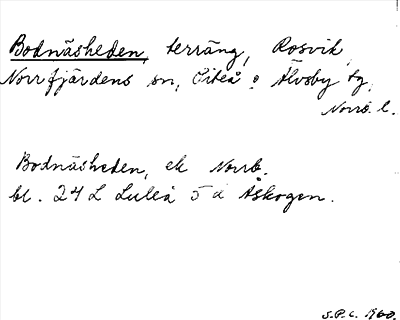 Bodnäsheden, terräng, Rosvik,
Norrfjärdens sn, Piteå o Älvsby tg,
Norrb. l.
Bodnäsheden, ek Norrb.
bl. 24 L Luleå 5 d Åskogen.
S.P.C. 1960.